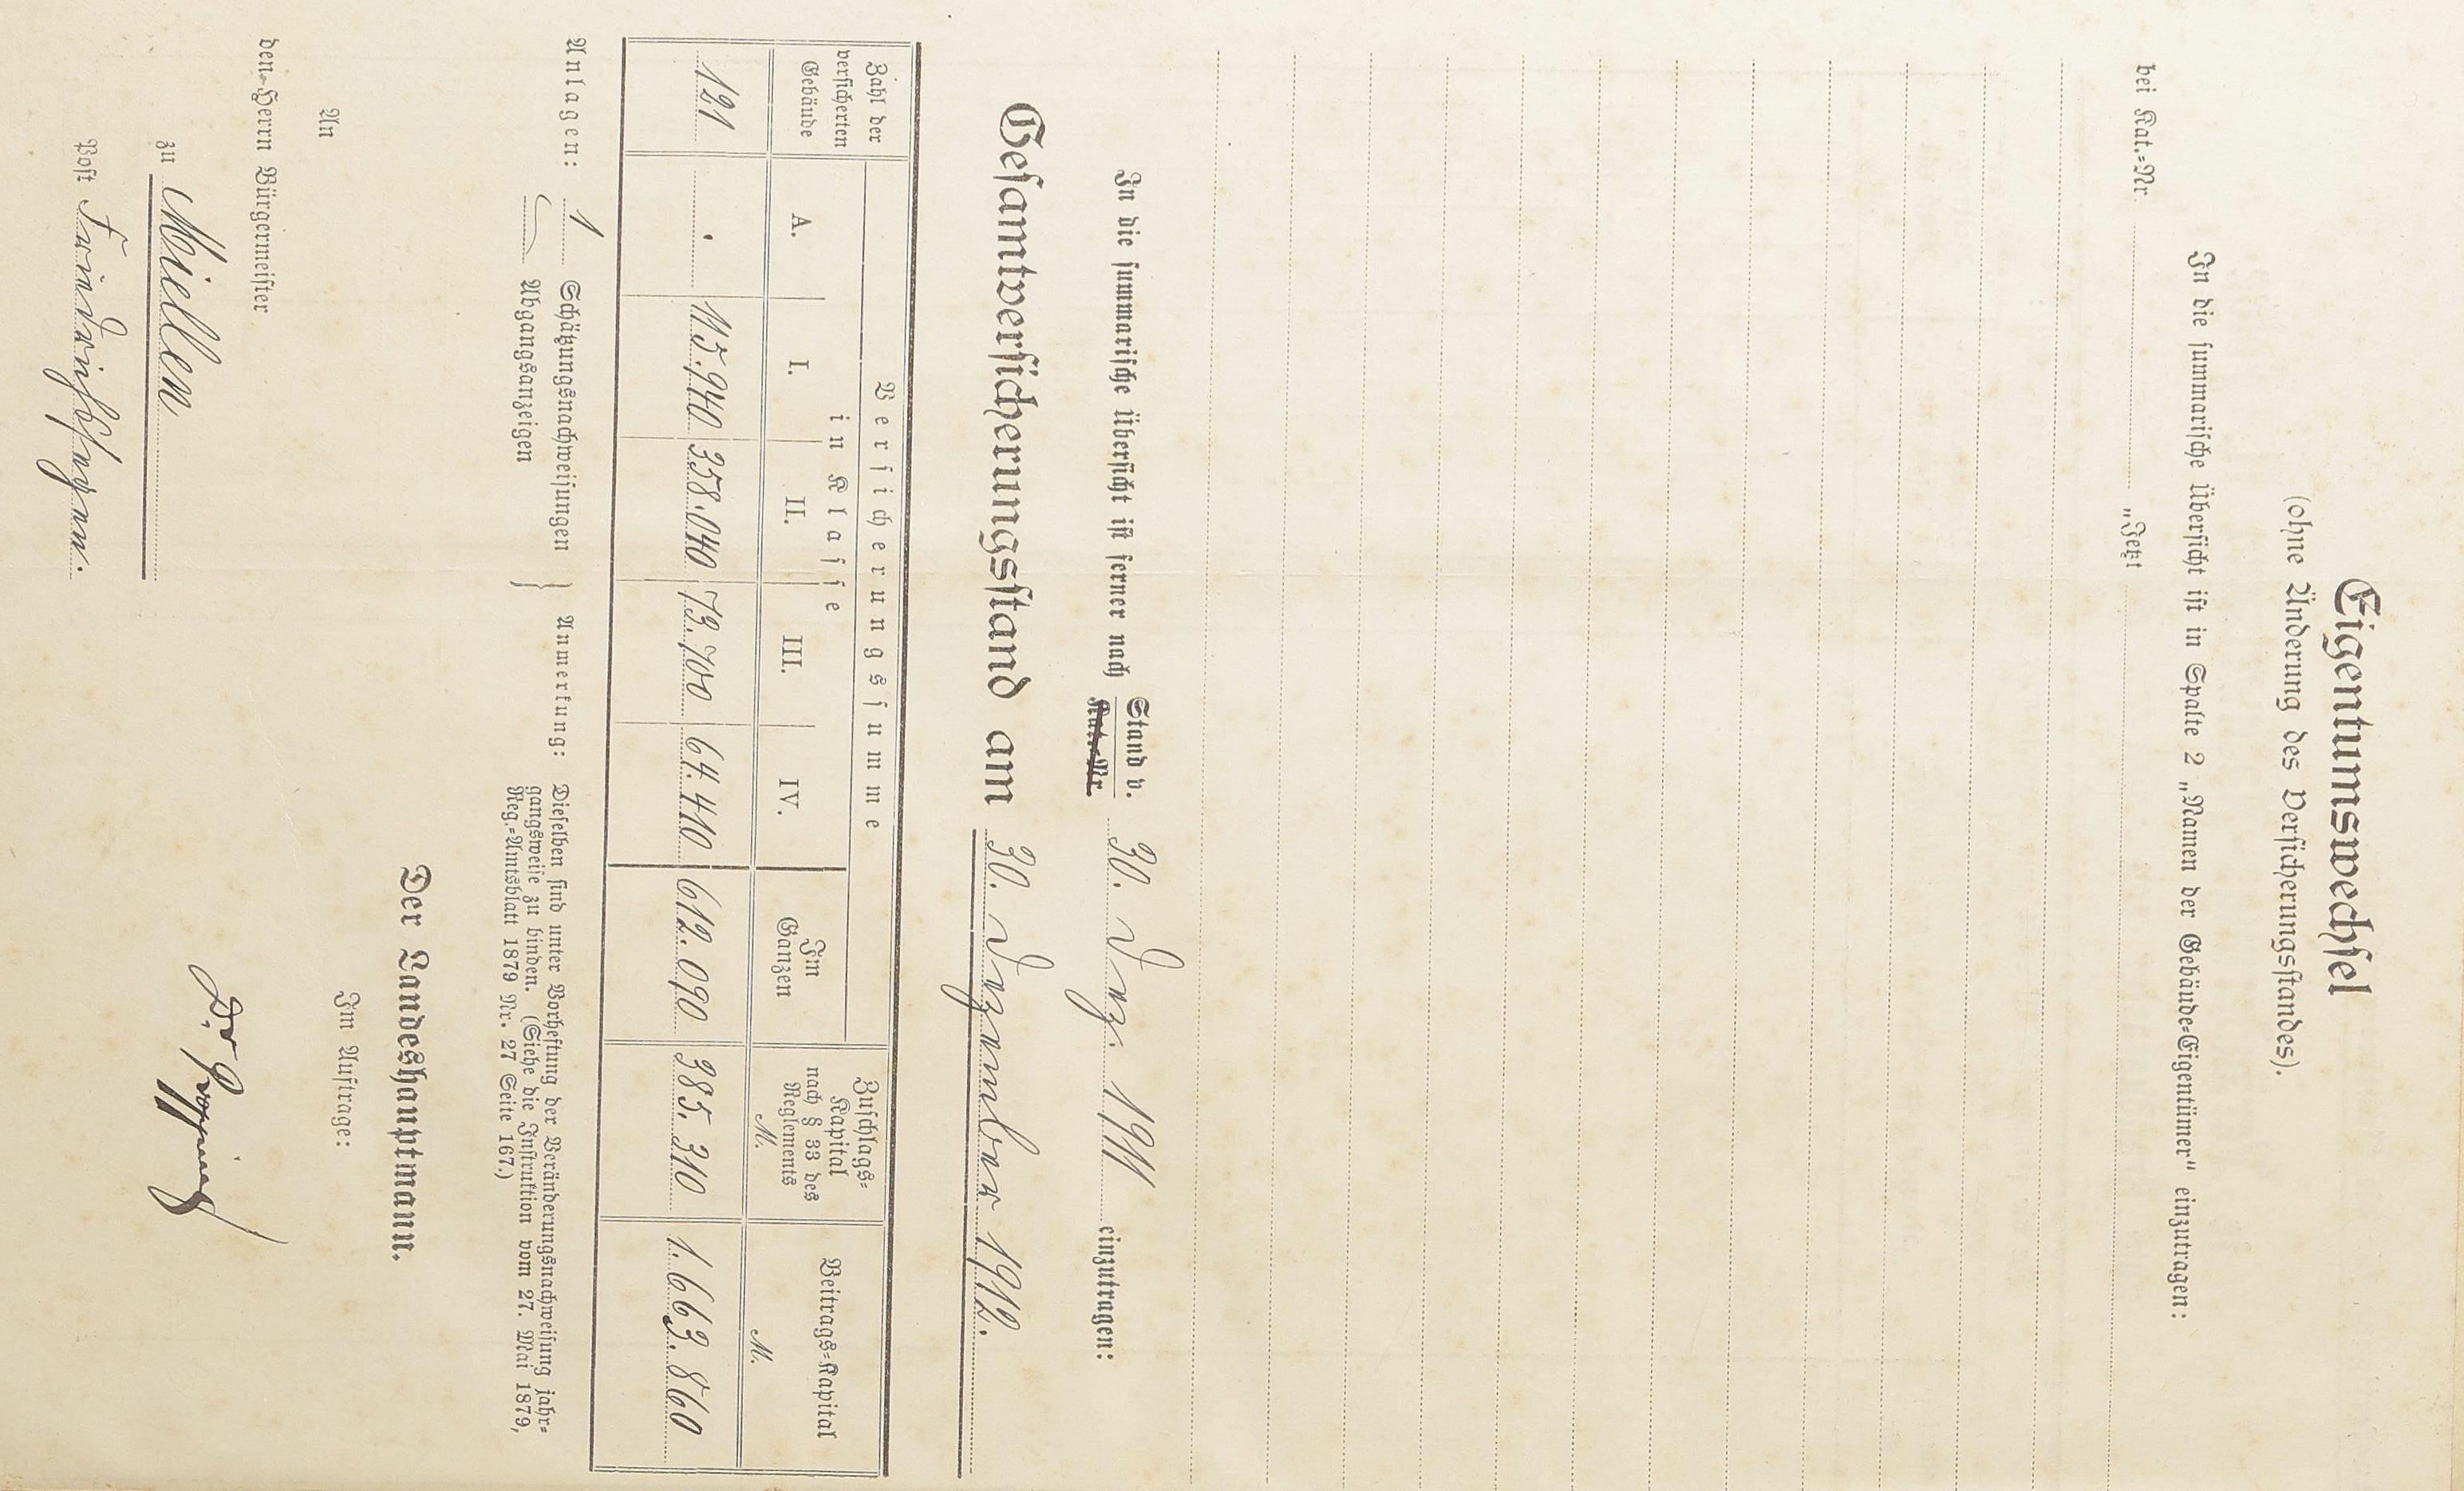 Eigentumswechsel
(ohne Änderung des Versicherungsstandes).
In die summarische Übersicht ist in Spalte 2 „Namen der Gebäude=Eigentümer" einzutragen:
bei Kat.=Nr. „Jetzt
In die summarische Übersicht ist ferner nach Stand v. 30. Dez. 1911 einzutragen:
Kat.=Nr.
Gesamtversicherungsstand am 30. Dezember 1912.
Zahl der versicherten Gebäude
Versicherungssumme
in Klasse
A. I. II. III. IV. Im Ganzen
Zuschlags=Kapital nach § 33 des Reglements M.
Beitrags=Kapital M.
121 . 115.940 358.040 73.700 64.410 612.090 385.310 1.663.860
Anlagen: 1 Schätzungsnachweisungen
Abgangsanzeigen
Anmerkung: Dieselben sind unter Vorheftung der Veränderungsnachweisung jahr=
gangsweise zu binden. (Siehe die Instruktion vom 27. Mai 1879,
Reg.=Amtsblatt 1879 Nr. 27 Seite 167.)
Der Landeshauptmann.
Im Auftrage:
An
den Herrn Bürgermeister
zu Miellen
Post Friedrichssegen.